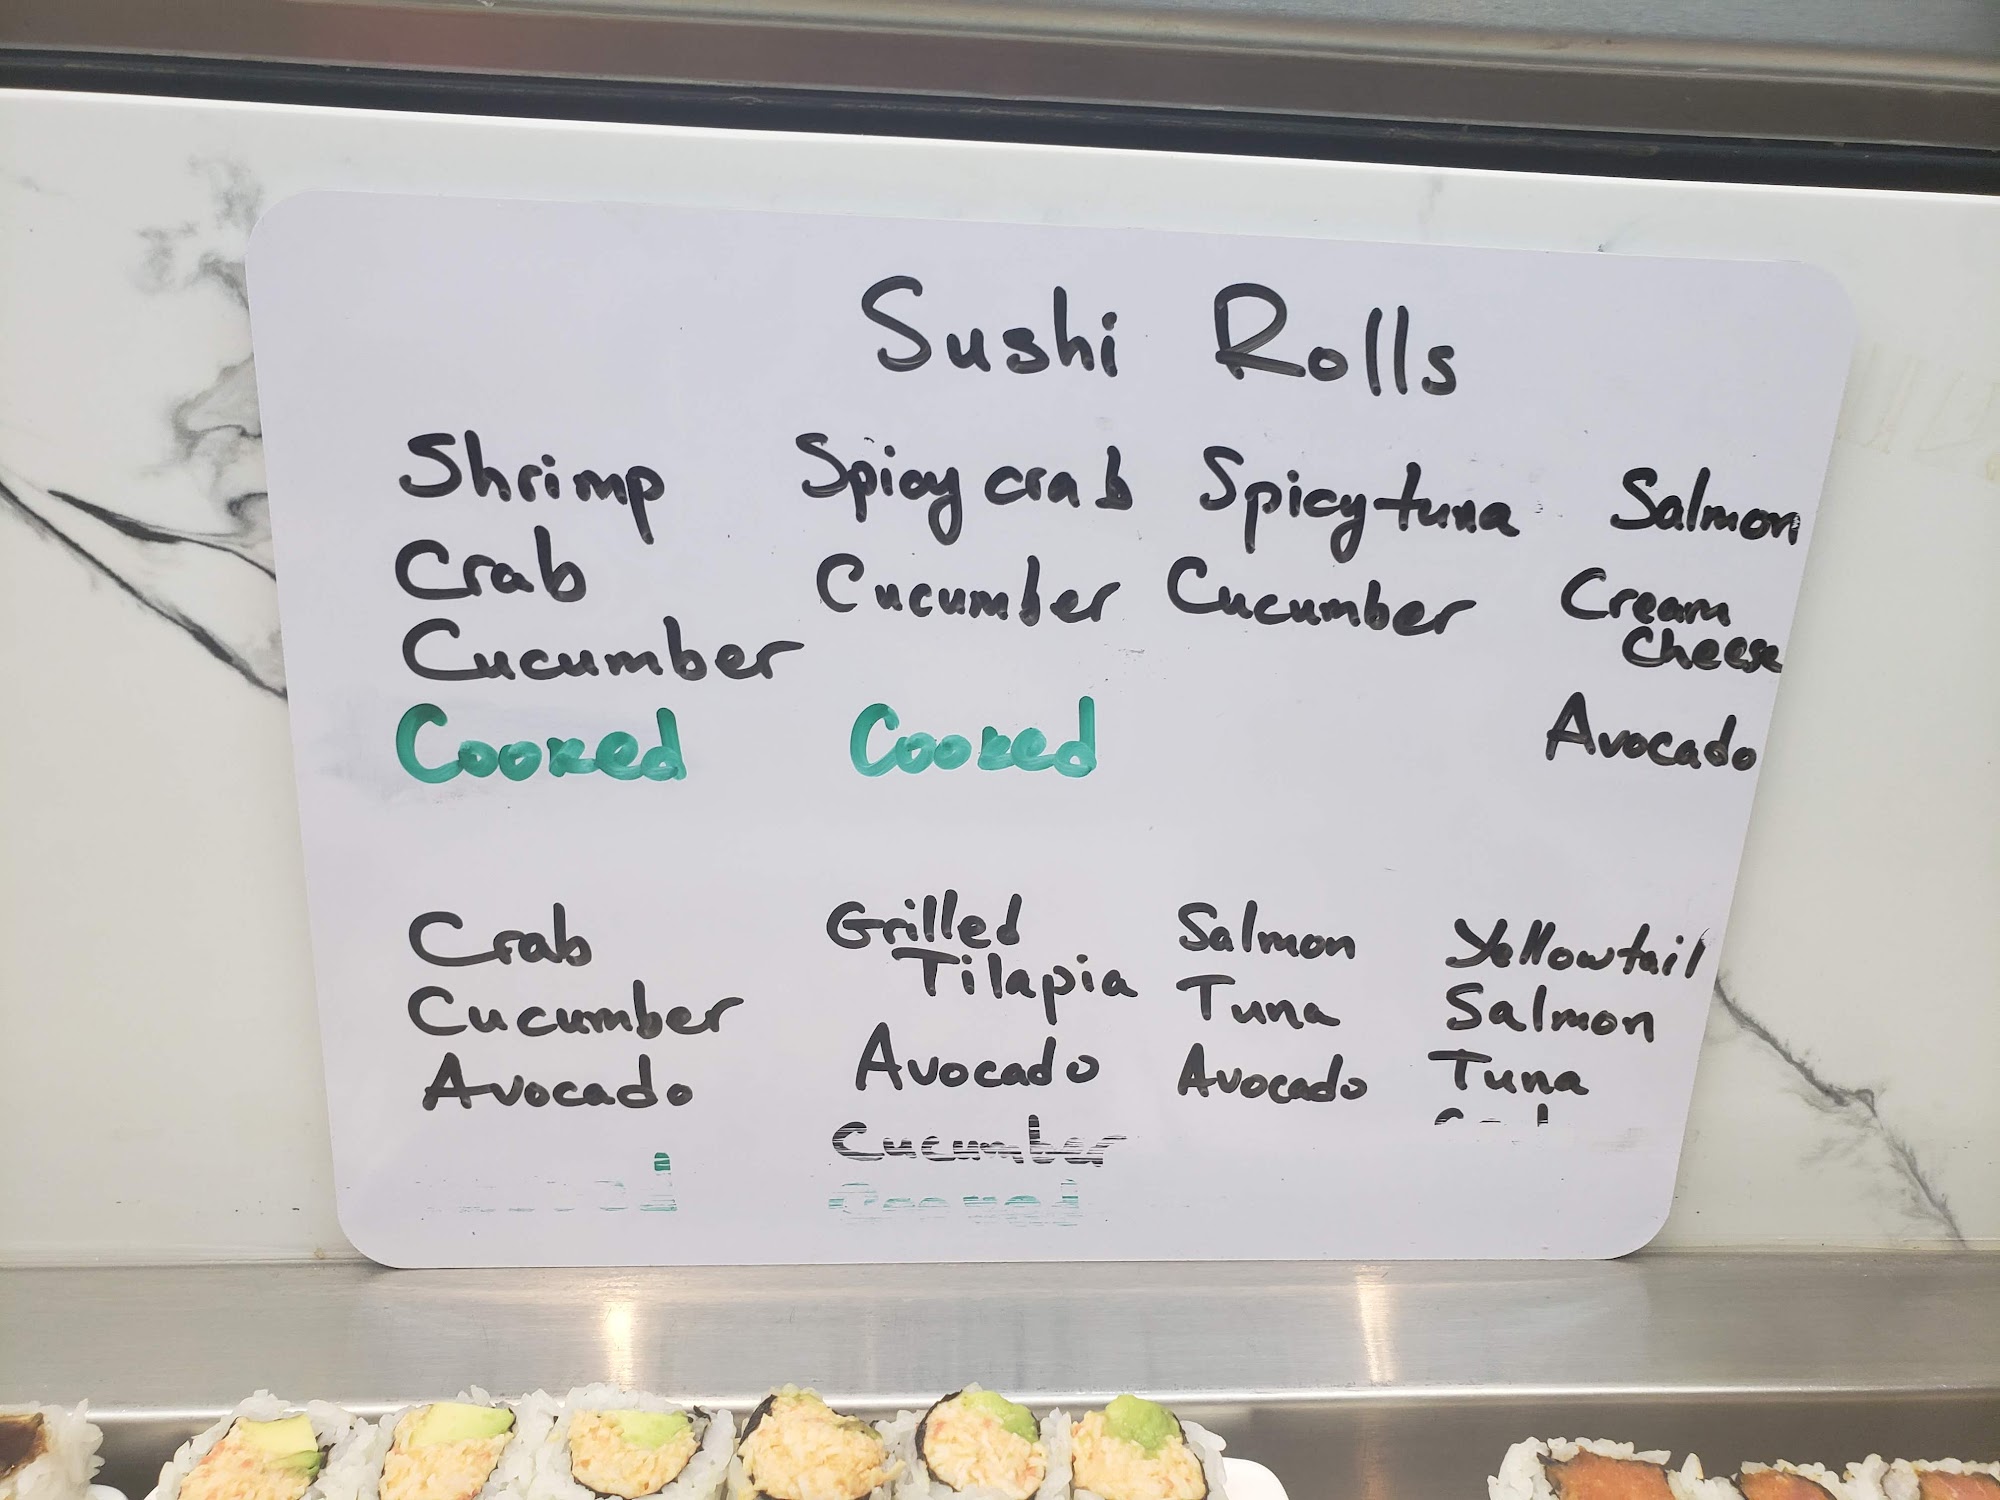 Sushi Rolls
Shrimp
Crab
Cucumber
Cooked
Spicy crab
Cucumber
Cooked
Spicy tuna
Cucumber
Salmon
Cream
Cheese
Avocado
Crab
Cucumber
Avocado
Grilled
Tilapia
Avocado
Cucumber
Cooked
Salmon
Tuna
Avocado
Yellowtail
Salmon
Tuna